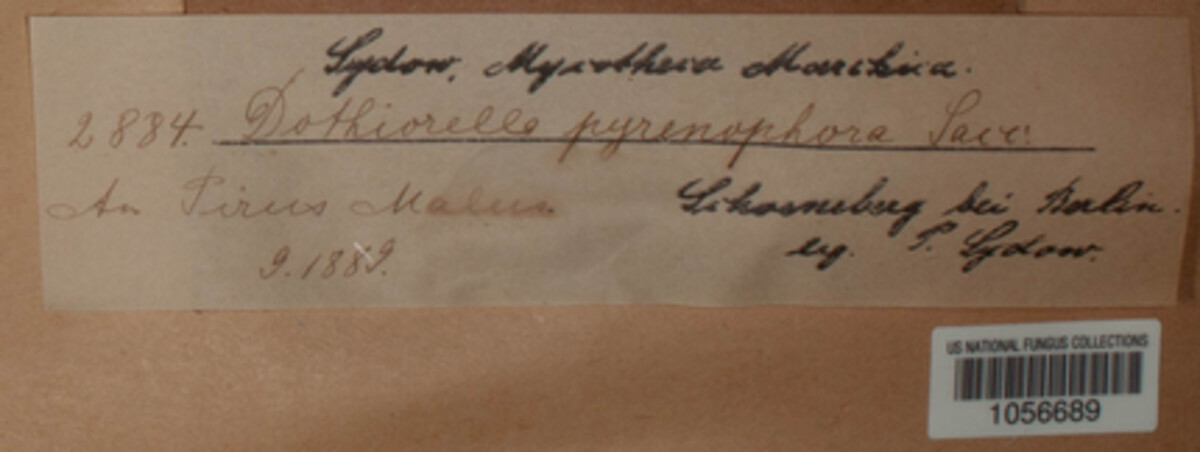 Sydow, Mycotheca Marchica.
2884. Dothiorella pyrenophora Sacc.
An Pirus Malus
Schoeneberg bei Berlin.
9.1889.
leg. P. Sydow.
US NATIONAL FUNGUS COLLECTIONS
1056689